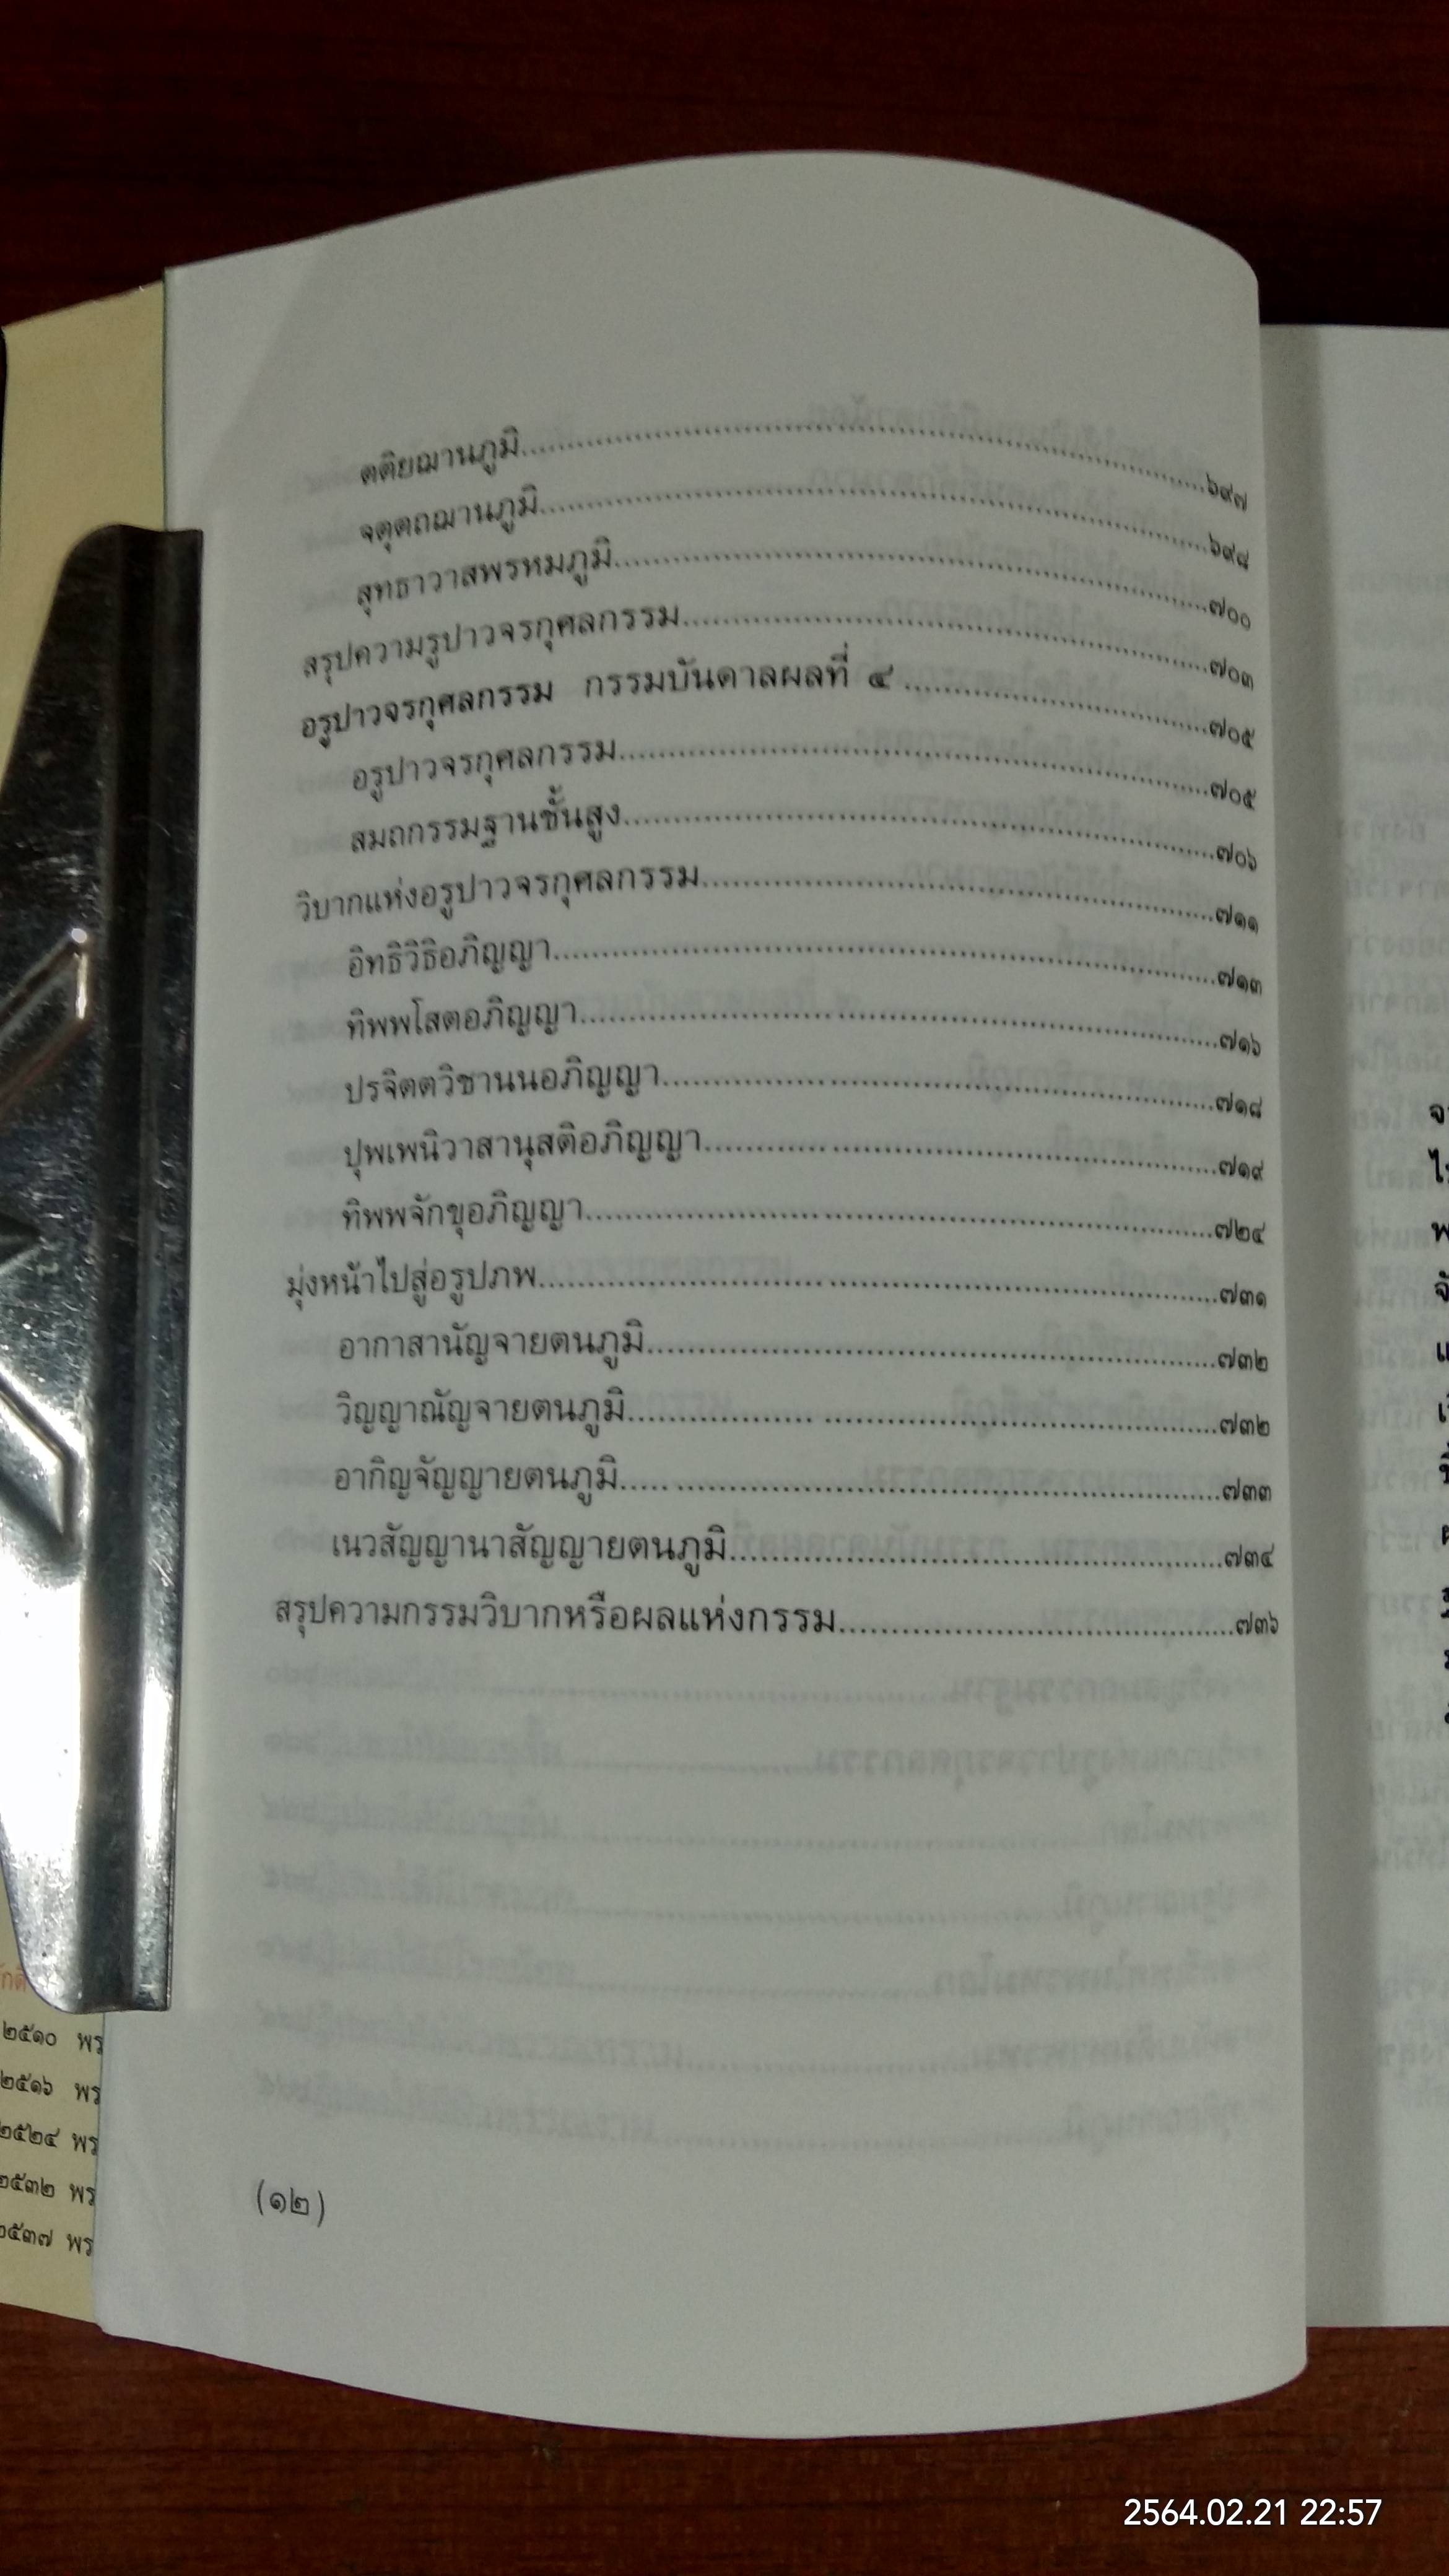 ตติยฌานภูมิ..............................๖๙๗
จตุตถฌานภูมิ..............................๖๙๘
สุทธาวาสพรหมภูมิ..............................๗๐๐
สรุปความรูปาวจรกุศลกรรม..............................๗๐๓
อรูปาวจรกุศลกรรม กรรมบันดาลผลที่ ๔ ..............................๗๐๕
อรูปาวจรกุศลกรรม..............................๗๐๕
สมถกรรมฐานชั้นสูง..............................๗๐๖
วิบากแห่งอรูปาวจรกุศลกรรม..............................๗๑๑
อิทธิวิธิอภิญญา..............................๗๑๓
ทิพพโสตอภิญญา..............................๗๑๖
ปรจิตตวิชานนอภิญญา..............................๗๑๘
ปุพเพนิวาสานุสติอภิญญา..............................๗๑๙
ทิพพจักขุอภิญญา..............................๗๒๔
มุ่งหน้าไปสู่อรูปภพ..............................๗๓๑
อากาสานัญจายตนภูมิ..............................๗๓๒
วิญญาณัญจายตนภูมิ..............................๗๓๒
อากิญจัญญายตนภูมิ..............................๗๓๓
เนวสัญญานาสัญญายตนภูมิ..............................๗๓๔
สรุปความกรรมวิบากหรือผลแห่งกรรม..............................๗๓๖
(๑๒)
๒๕๑๐ พร
๒๕๑๖ พร
๒๕๒๔ พร
๒๕๓๒ พร
๒๕๓๗ พร
2564.02.21 22:57